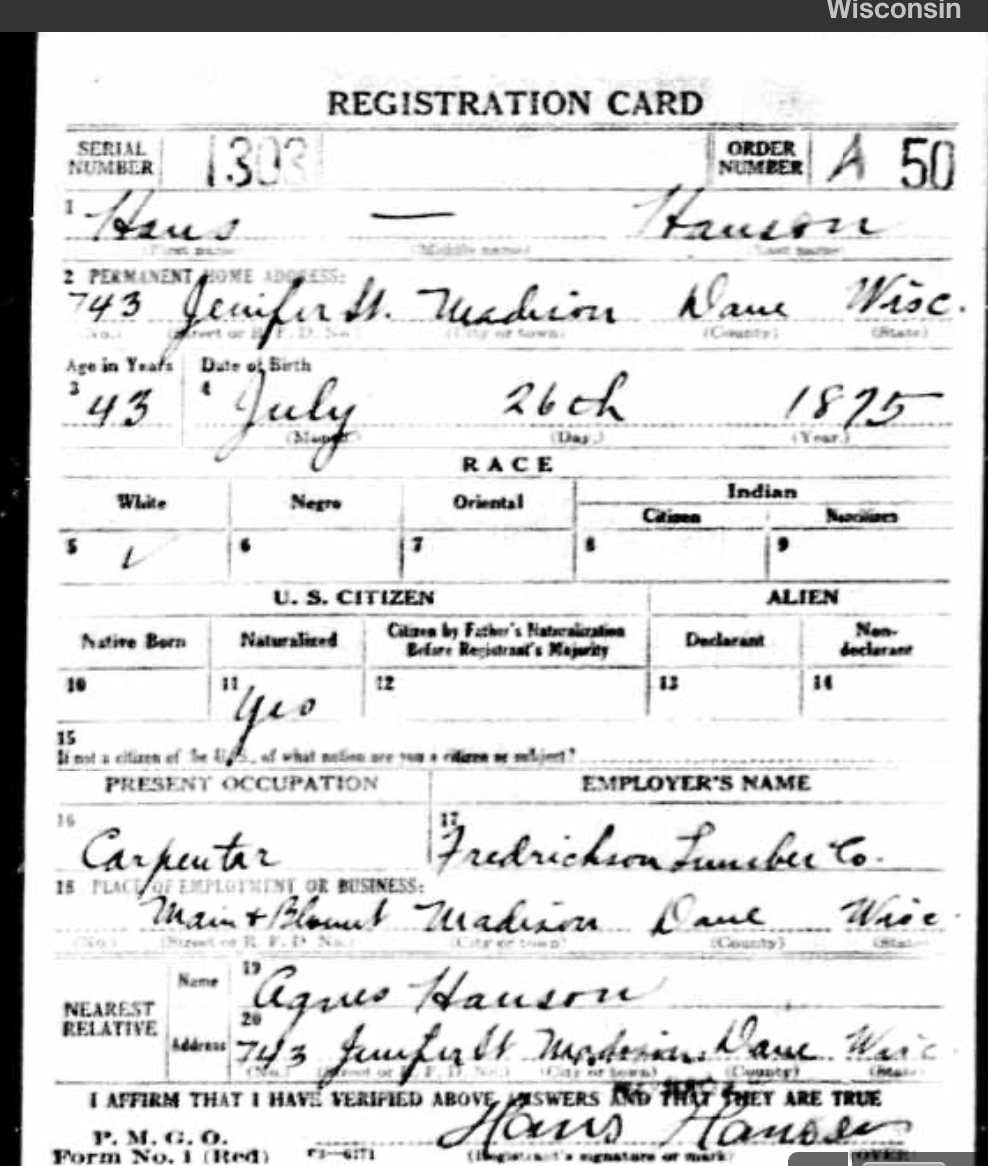 Wisconsin
REGISTRATION CARD
SERIAL NUMBER 1303 ORDER NUMBER A 50
1 Hans — Hanson
(First name) (Middle name) (Last name)
2 PERMANENT HOME ADDRESS:
743 Jenifer St. Madison Dane Wisc.
(No.) (Street or R. F. D. No.) (City or town) (County) (State)
Age in Years Date of Birth
3 43 4 July 26th 1875
(Month.) (Day.) (Year.)
RACE
White Negro Oriental Indian
Citizen Noncitizen
5 ✓ 6 7 8 9
U. S. CITIZEN ALIEN
Native Born Naturalized Citizen by Father's Naturalization Before Registrant's Majority Declarant Non-declarant
10 11 Yes 12 13 14
15
If not a citizen of the U.S., of what nation are you a citizen or subject?
PRESENT OCCUPATION EMPLOYER'S NAME
16 Carpentar 17 Fredrickson Lumber Co.
18 PLACE OF EMPLOYMENT OR BUSINESS:
Main + Blount Madison Dane Wisc.
(No.) (Street or R. F. D. No.) (City or town) (County) (State)
NEAREST RELATIVE Name 19 Agnes Hanson
Address 20 743 Jenifer St Madison Dane Wisc
(No.) (Street or R. F. D. No.) (City or town) (County) (State)
I AFFIRM THAT I HAVE VERIFIED ABOVE ANSWERS AND THAT THEY ARE TRUE
P. M. G. O.
Form No. 1 (Red) Hans Hanson
(Registrant's signature or mark) (OVER)